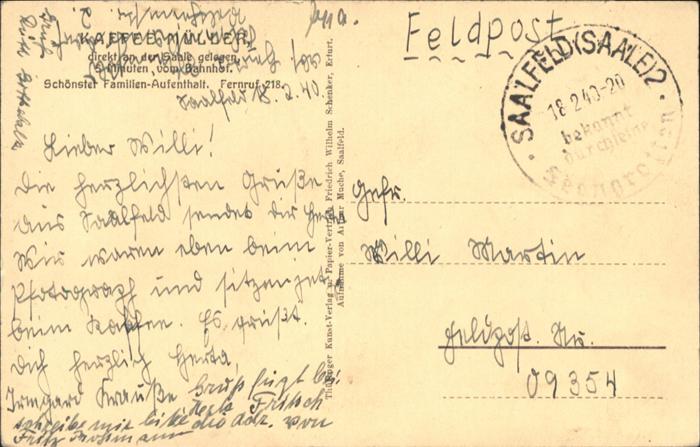 KAFFEE MÜLDER,
direkt an der Saale gelegen,
Minuten vom Bahnhof.
Schönster Familien-Aufenthalt. Fernruf 218.
Saalfeld 18. 2. 40.
Lieber Willi!
Die herzlichsten Grüße
aus Saalfeld sendet dir
Wir waren eben beim
Photograph und sitzen jetzt
beim Kaffee. Es grüßt
Dich herzlich Herta,
Irmgard Krauße Gruß fügt bei
Fritsch
schreibe mir bitte von
Fritz
Thüringer Kunst-Verlag u. Papier-Vertrieb Friedrich Wilhelm Schenker, Erfurt.
Aufnahme von Arthur Muche, Saalfeld.
Feldpost
SAALFELD (SAALE) 2
18.2.40-20
bekannt
durch seine
Feengrotten
Gefr.
Willi Martin
Feldpost. Nr.
09354